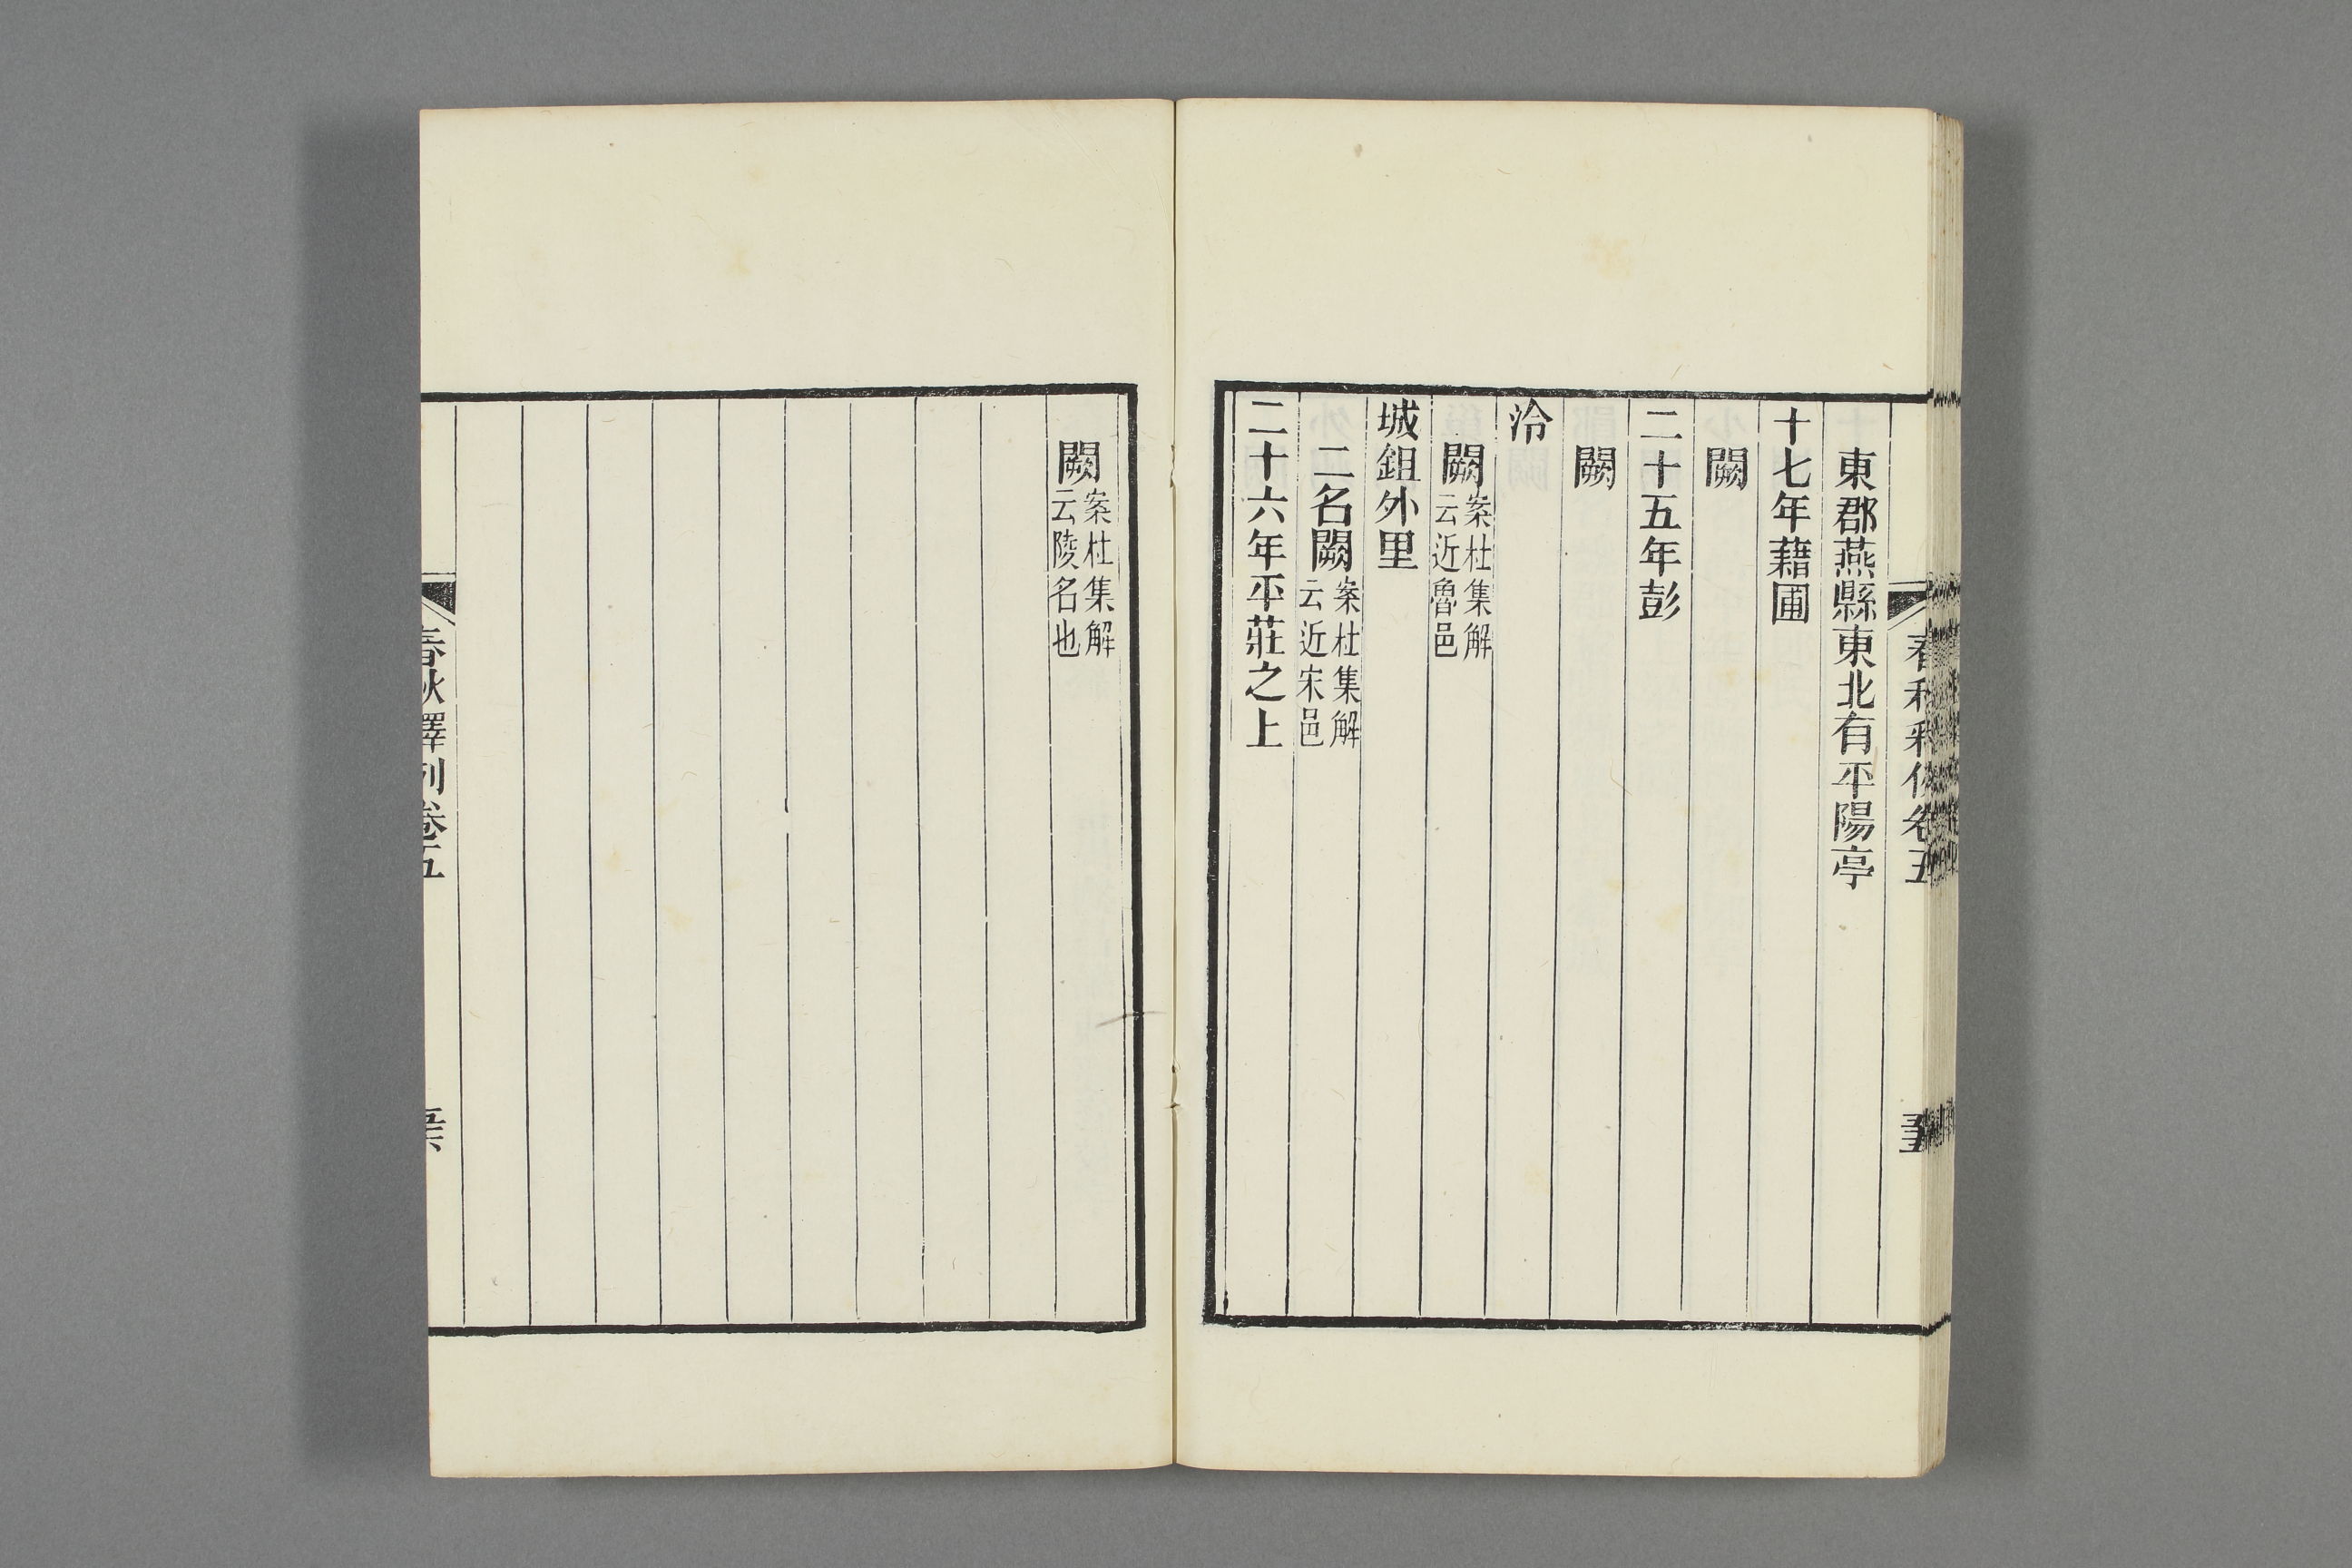 東郡燕縣東北有平陽亭
十七年藉圃
闕
二十五年彭
闕
泠
闕案杜集解云近魯邑
城鉏外里
二名闕案杜集解云近宋邑
二十六年平莊之上
闕案杜集解云陵名也
春秋釋例卷五